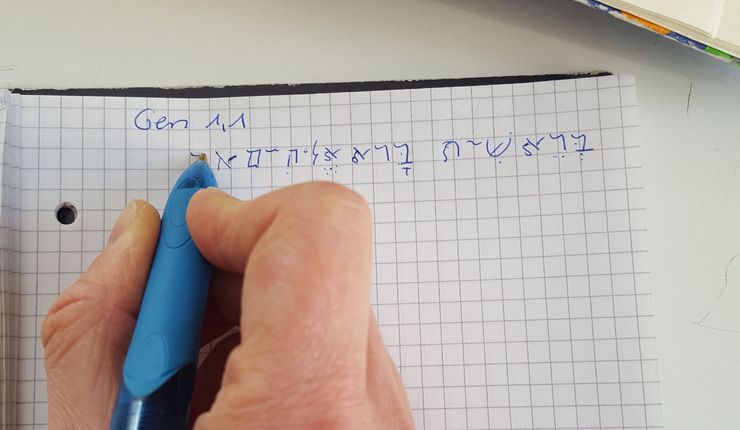 Gen 1,1
בְּרֵאשִׁית בָּרָא אֱלֹהִים